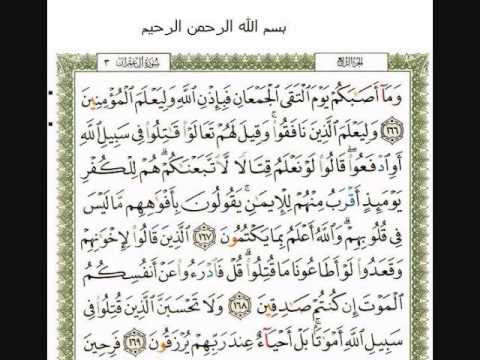 بسم الله الرحمن الرحيم
الجزء الرابع
سورة آل عمران ٣
وَمَآ أَصَٰبَكُمْ يَوْمَ ٱلْتَقَى ٱلْجَمْعَانِ فَبِإِذْنِ ٱللَّهِ وَلِيَعْلَمَ ٱلْمُؤْمِنِينَ
١٦٦ وَلِيَعْلَمَ ٱلَّذِينَ نَافَقُوا۟ ۚ وَقِيلَ لَهُمْ تَعَالَوْا۟ قَٰتِلُوا۟ فِى سَبِيلِ ٱللَّهِ
أَوِ ٱدْفَعُوا۟ ۖ قَالُوا۟ لَوْ نَعْلَمُ قِتَالًا لَّٱتَّبَعْنَٰكُمْ ۗ هُمْ لِلْكُفْرِ
يَوْمَئِذٍ أَقْرَبُ مِنْهُمْ لِلْإِيمَٰنِ ۚ يَقُولُونَ بِأَفْوَٰهِهِم مَّا لَيْسَ
فِى قُلُوبِهِمْ ۗ وَٱللَّهُ أَعْلَمُ بِمَا يَكْتُمُونَ ١٦٧ ٱلَّذِينَ قَالُوا۟ لِإِخْوَٰنِهِمْ
وَقَعَدُوا۟ لَوْ أَطَاعُونَا مَا قُتِلُوا۟ ۗ قُلْ فَٱدْرَءُوا۟ عَنْ أَنفُسِكُمُ
ٱلْمَوْتَ إِن كُنتُمْ صَٰدِقِينَ ١٦٨ وَلَا تَحْسَبَنَّ ٱلَّذِينَ قُتِلُوا۟ فِى
سَبِيلِ ٱللَّهِ أَمْوَٰتًۢا ۚ بَلْ أَحْيَآءٌ عِندَ رَبِّهِمْ يُرْزَقُونَ ١٦٩ فَرِحِينَ